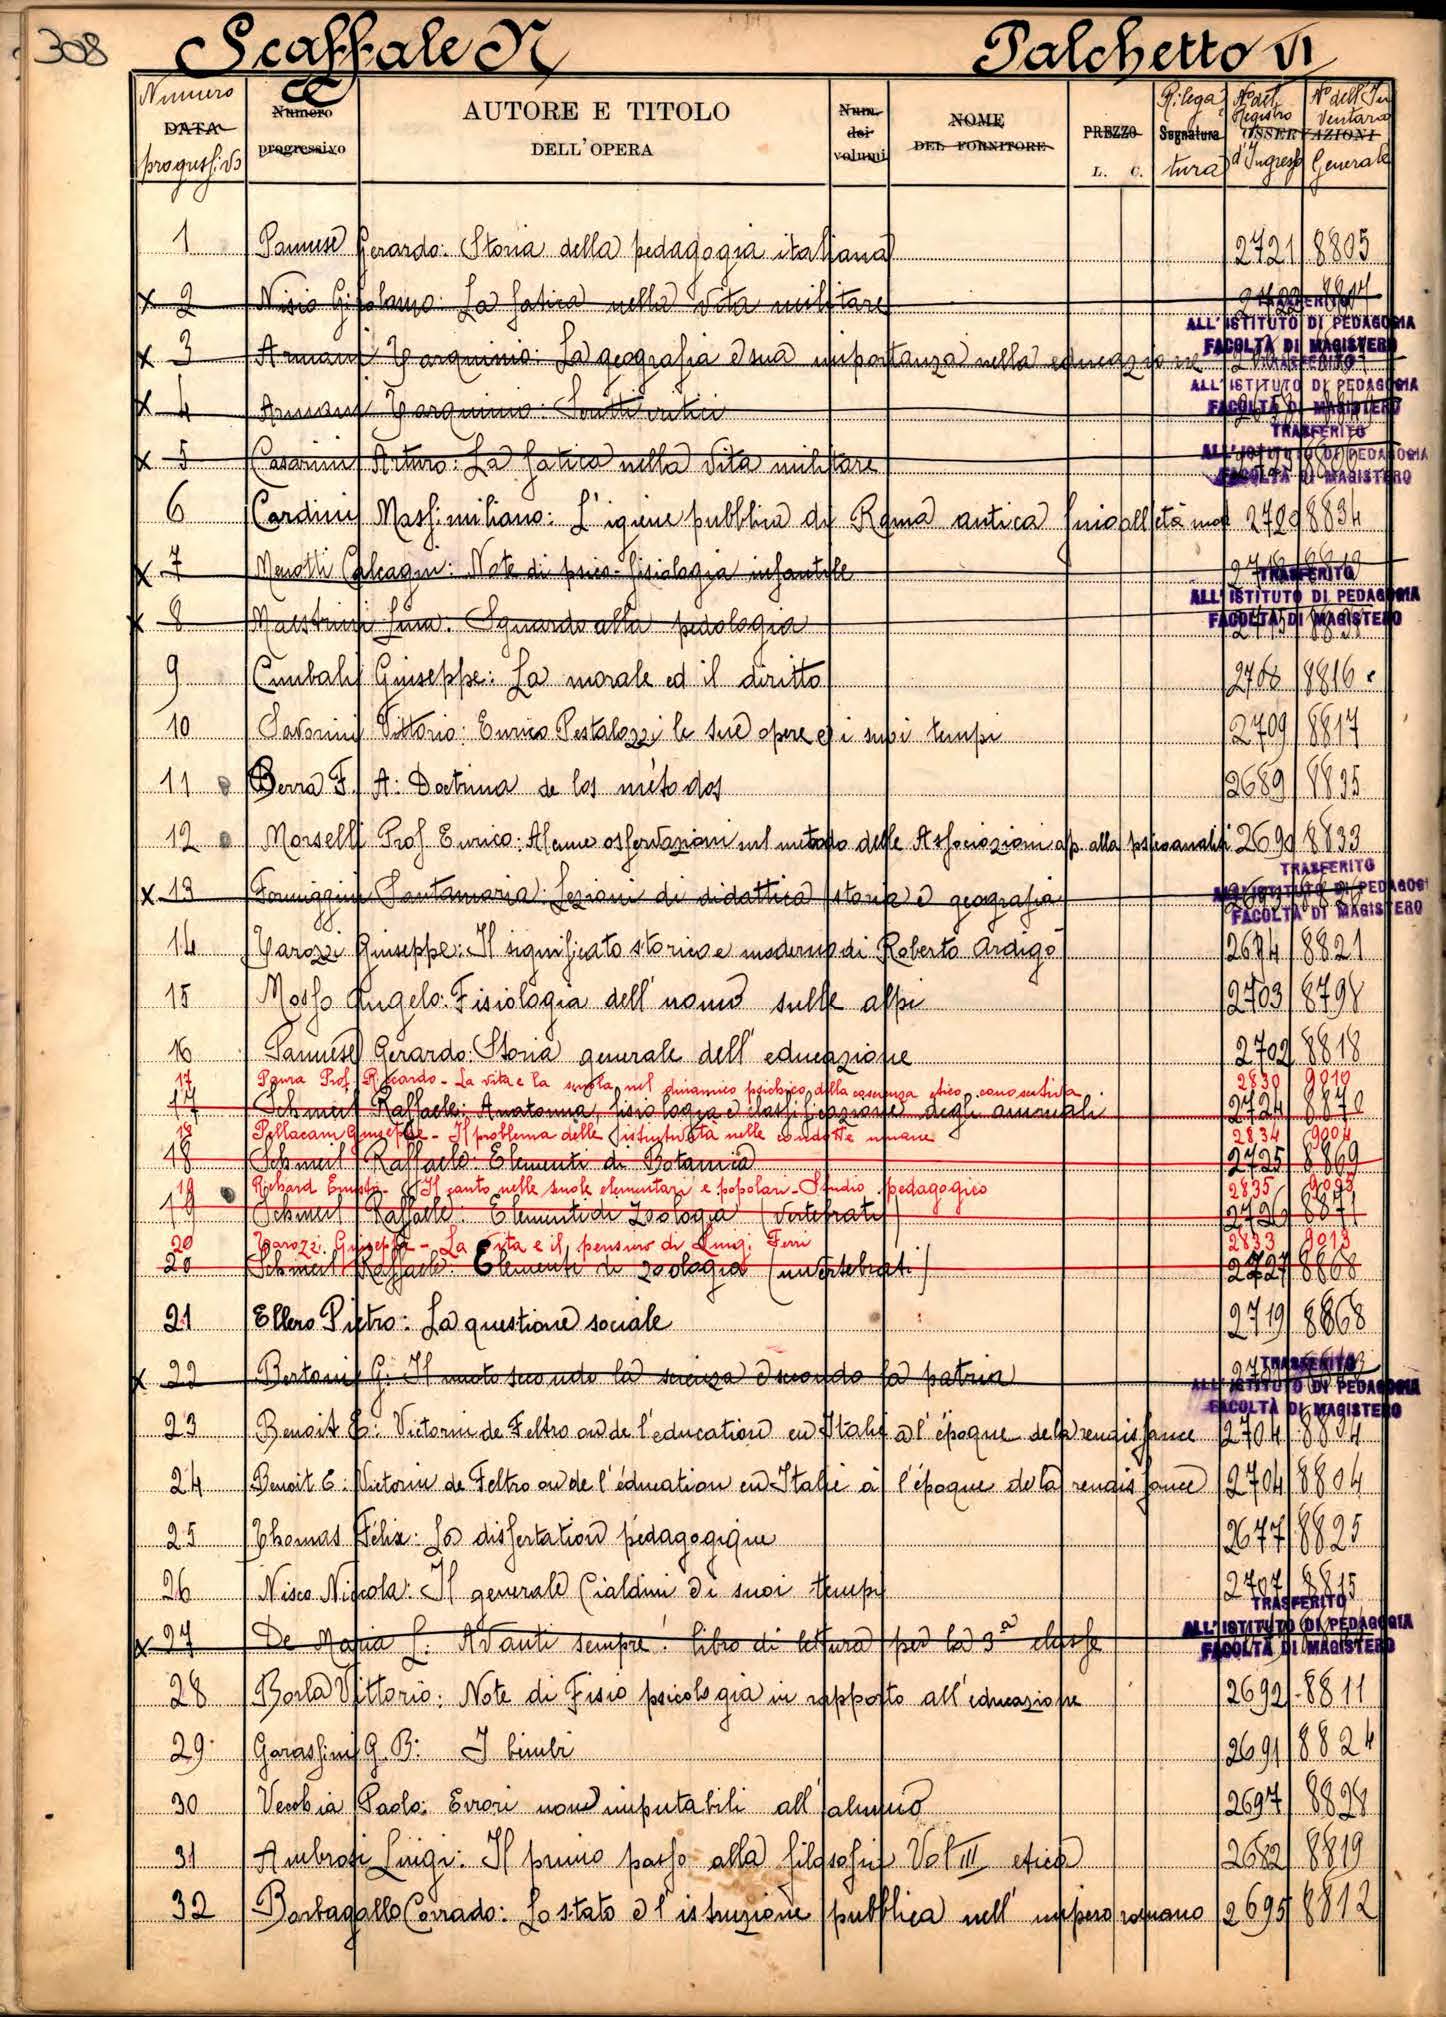 308 Scaffale N Palchetto VI
CC
Numero
DATA
progressivo
Numero
progressivo
AUTORE E TITOLO
DELL'OPERA
Num.
dei
volumi
NOME
DEL FORNITORE
PREZZO
L. C.
Rilega
Segnatura
tura
N° del
Registro
d'Ingresso
N° dell'In
ventario
OSSERVAZIONI
Generale
1 Pannese Gerardo: Storia della pedagogia italiana 2721 8805
x 2 Nisio Girolamo: La fatica nella vita militare
TRASFERITO
ALL'ISTITUTO DI PEDAGOGIA
FACOLTÀ DI MAGISTERO
x 3 Armani Tarquinio: La geografia e sua importanza nella educazione
TRASFERITO
ALL'ISTITUTO DI PEDAGOGIA
FACOLTÀ DI MAGISTERO
x 4 Armani Tarquinio:
TRASFERITO
ALL'ISTITUTO DI PEDAGOGIA
FACOLTÀ DI MAGISTERO
x 5 Casarini Arturo: La fatica nella vita militare
6 Cardini Massimiliano: L'igiene pubblica di Roma antica fino all'età 2720 8834
x 7 Menotti Calcagni: Note di psico-fisiologia infantile
TRASFERITO
ALL'ISTITUTO DI PEDAGOGIA
FACOLTÀ DI MAGISTERO
x 8 Maestrini Sguardo alla pedologia
9 Cimbali Giuseppe: La morale ed il diritto 2708 8816
10 Savorini Vittorio: Enrico Pestalozzi le sue opere e i suoi tempi 2709 8817
11 Berra F. A: Doctrina de los métodos 2689 8835
12 Morselli Prof Enrico: Alcune osservazioni sul metodo delle Associazioni ap. alla psicoanalisi 2690 8833
x 13 Formiggini Santamaria: Lezioni di didattica storia e geografia
TRASFERITO
ALL'ISTITUTO DI PEDAGOGI
FACOLTÀ DI MAGISTERO
14 Tarozzi Giuseppe: Il significato storico e moderno di Roberto Ardigò 2694 8821
15 Mosso Angelo: Fisiologia dell'uomo sulle alpi 2703 8798
16 Pannese Gerardo: Storia generale dell'educazione 2702 8818
17 Prof. Riccardo - La vita e la scuola nel dinamico psichico della coscienza etico conoscitiva 2830 9010
17 Schmeil Raffaele: Anatomia, fisiologia e classificazione degli animali 2724 8870
18 Pellacani Giuseppe - Il problema delle istintività nelle condotte umane 2834 9004
18 Schmeil Raffaele: Elementi di Botanica 2725 8869
19 Ernesto - Il canto nelle scuole elementari e popolari - Studio pedagogico 2835
19 Schmeil Raffaele: Elementi di Zoologia (vertebrati) 2726 8871
20 Tarozzi Giuseppe - La vita e il pensiero di Luigi Ferri 2833 9013
20 Schmeil Raffaele: Elementi di zoologia (invertebrati) 2727 8868
21 Ellero Pietro: La questione sociale 2719 8868
x 22 Bertoni G: Il nuoto secondo la scienza e secondo la patria
TRASFERITO
ALL'ISTITUTO DI PEDAGOGIA
FACOLTÀ DI MAGISTERO
23 Benoit E: Victorin de Feltro ou de l'éducation en Italie à l'époque de la renaissance 2704 8804
24 Benoit E: Victorin de Feltro ou de l'éducation en Italie à l'époque de la renaissance 2704 8804
25 Thomas Félix: La dissertation pédagogique 2677 8825
26 Nisco Niccola: Il generale Cialdini e i suoi tempi 2707 8815
x 27 De Maria L: Avanti sempre! libro di lettura per la 3ª classe
TRASFERITO
ALL'ISTITUTO DI PEDAGOGIA
FACOLTÀ DI MAGISTERO
28 Borla Vittorio: Note di Fisio psicologia in rapporto all'educazione 2692 8811
29 Garassini G. B: I bimbi 2691 8824
30 Vecchia Paolo: Errori non imputabili all'alunno 2697 8828
31 Ambrosi Luigi: Il primo passo alla filosofia Vol III etica 2682 8819
32 Barbagallo Corrado: Lo stato e l'istruzione pubblica nell'impero romano 2695 8812